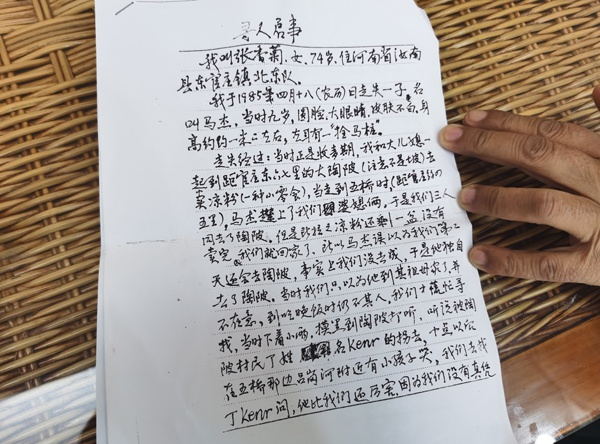 寻人启事
我叫张香菊，女，74岁，住河南省汝南
县东官庄镇北东队。
我于1985年四月十八(农历)日走失一子，名
叫马杰，当时九岁，圆脸，大眼睛，皮肤不白，身
高约一米二左右，左耳有一"拴马桩"。
走失经过：当时正是收麦期，我和大儿媳一
起到距官庄东六七里的大陶陂(注意不是坡)去
卖凉粉(一种小零食)，当走到五桥时(距官庄约
五里)，马杰撵上了我们婆媳俩，于是我们三人
同去了陶陂，但是那挑之凉粉还剩一盆没有
卖完，我们就回家了，所以马杰误以为我们第二
天还会去陶陂，事实上我们没去成，于是他独自
去了陶陂，当时我们只以为他到其祖母家了，并
不在意，到吃晚饭时仍不见人，我们才慌忙寻
找，当时下着小雨，摸黑到陶陂打听，听说被陶
陂村民丁姓 名Kenr的拐去，十点以后
在五桥那边吕岗河附近有小孩子哭，我们去找
丁Kenr问，他比我们还厉害，因为我们没有真凭